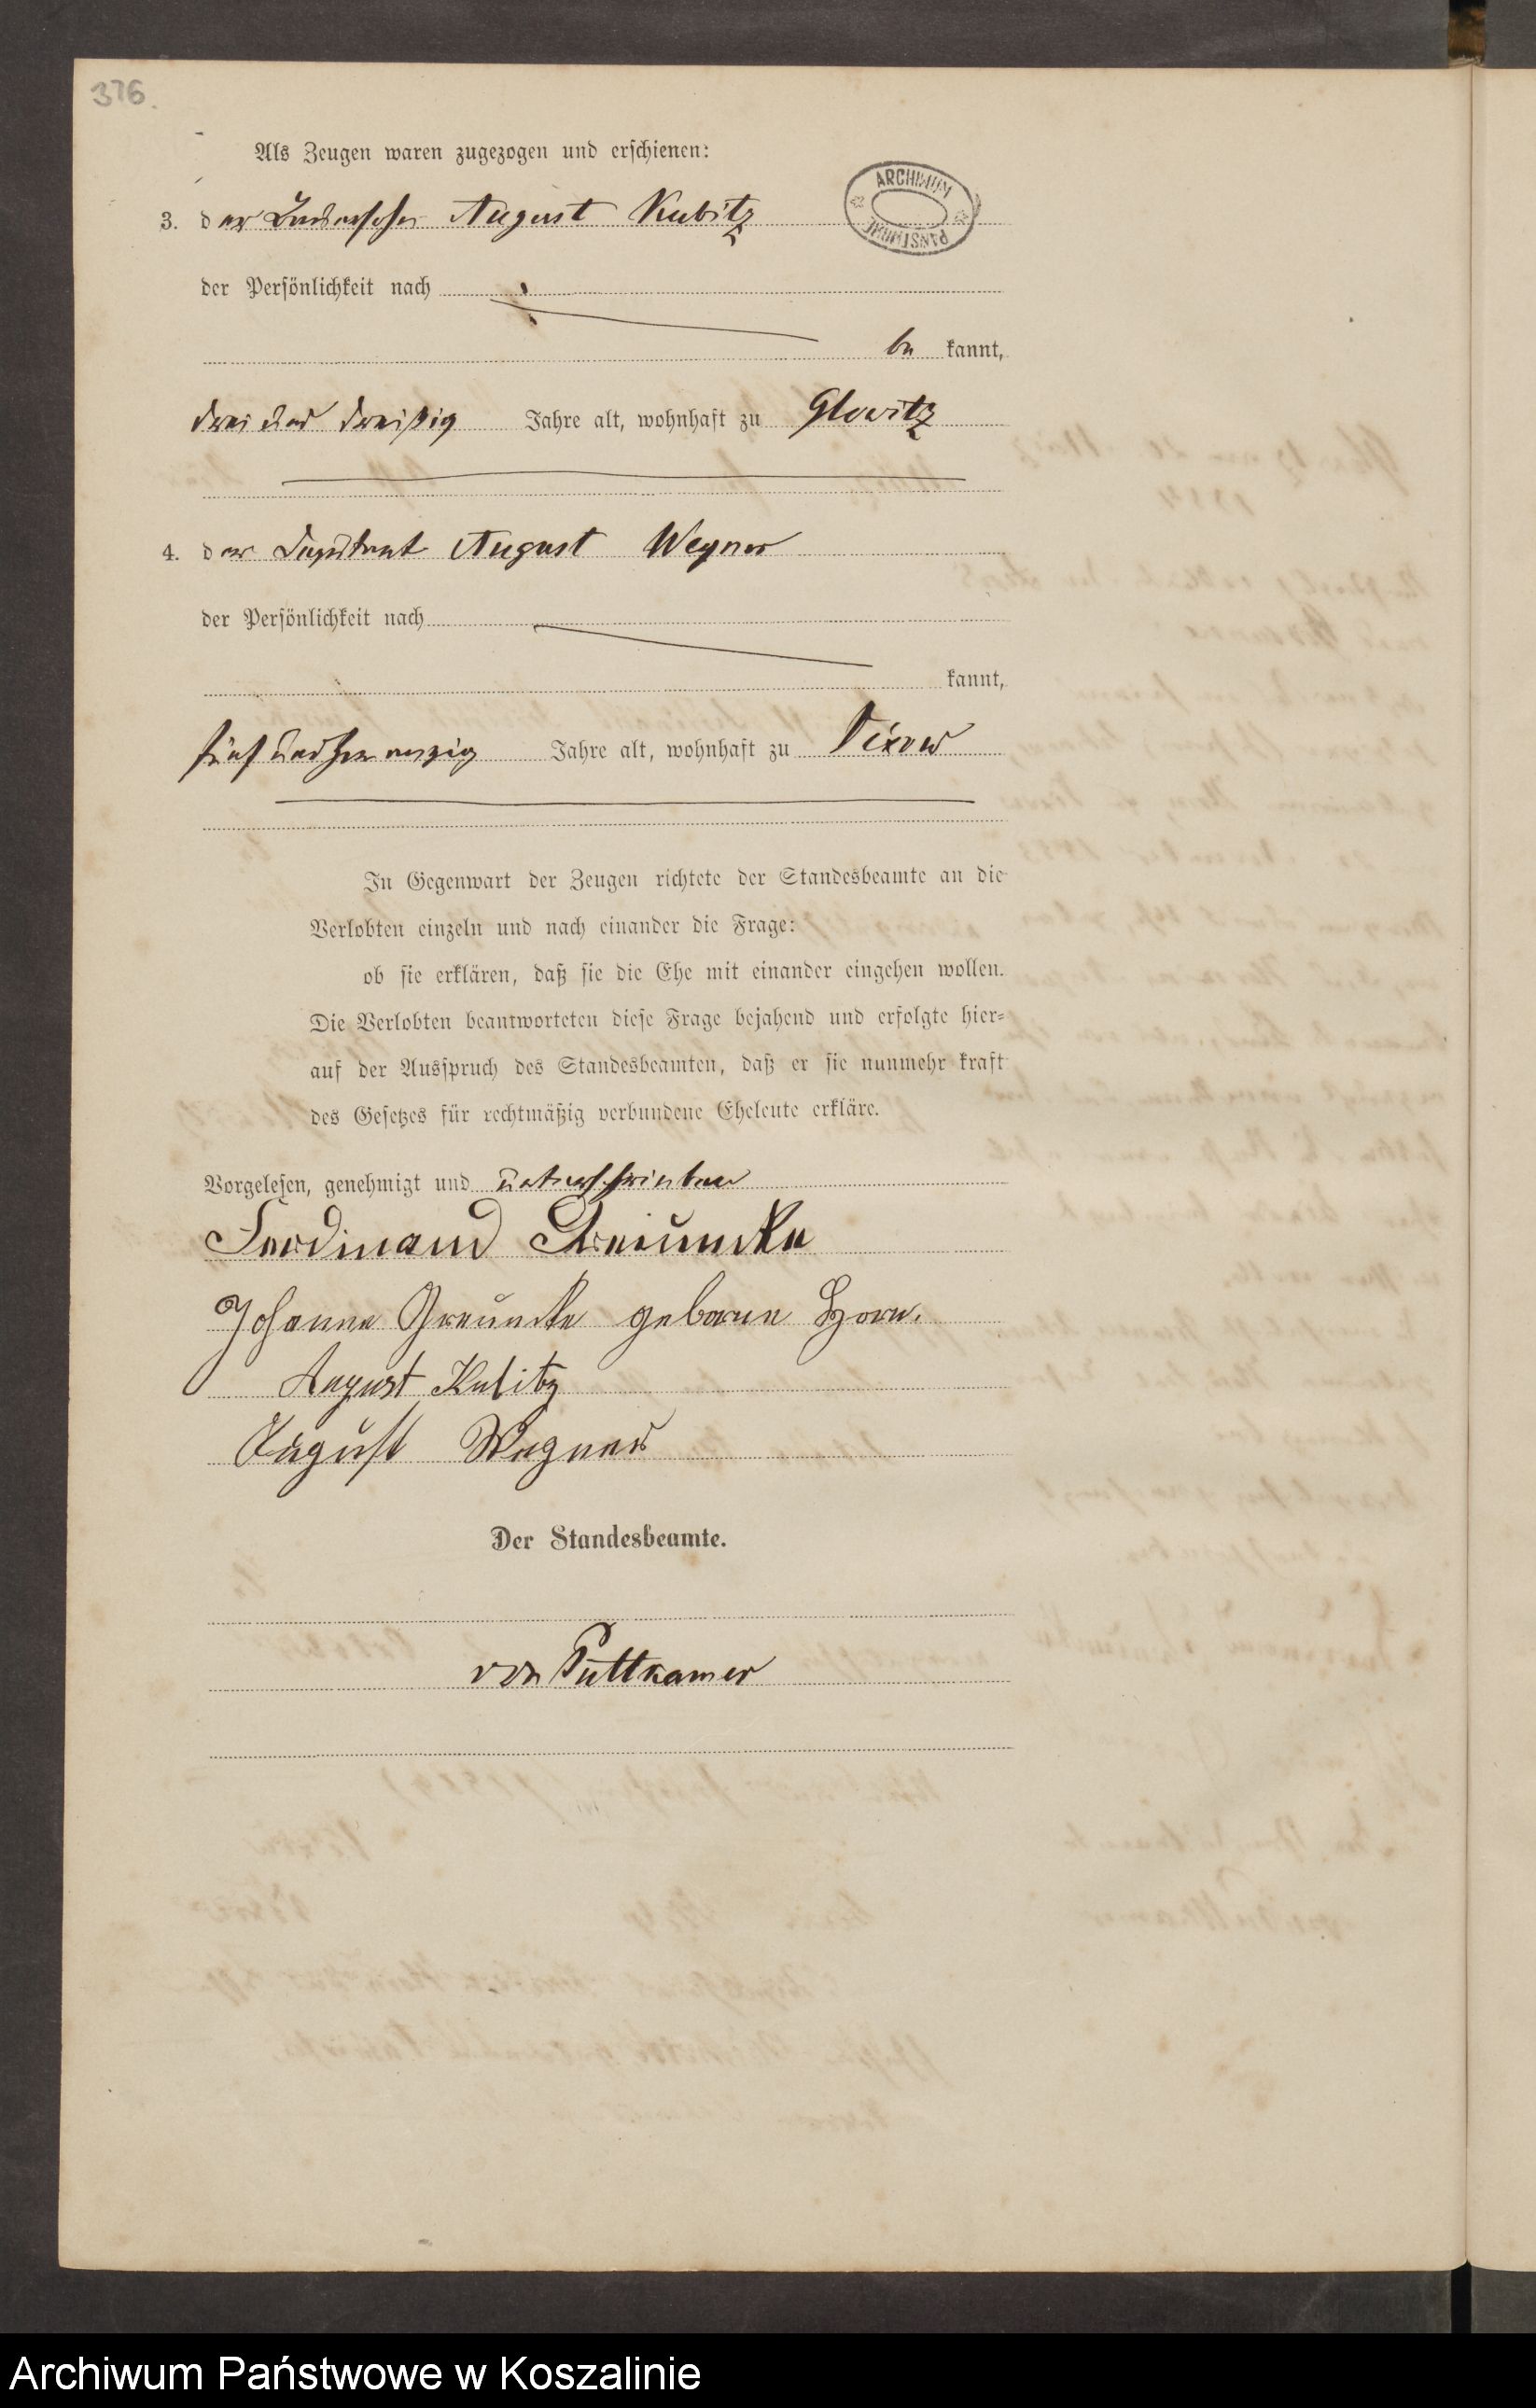 376.
Als Zeugen waren zugezogen und erschienen:
ARCHIWUM
PAŃSTWOWE
3. der August Kubitz
der Persönlichkeit nach
be kannt,
drei und dreißig Jahre alt, wohnhaft zu Glowitz
4. der August Wegner
der Persönlichkeit nach
kannt,
fünf und zwanzig Jahre alt, wohnhaft zu Vixow
In Gegenwart der Zeugen richtete der Standesbeamte an die
Verlobten einzeln und nach einander die Frage:
ob sie erklären, daß sie die Ehe mit einander eingehen wollen.
Die Verlobten beantworteten diese Frage bejahend und erfolgte hier=
auf der Ausspruch des Standesbeamten, daß er sie nunmehr kraft
des Gesetzes für rechtmäßig verbundene Eheleute erkläre.
Vorgelesen, genehmigt und unterschrieben
Ferdinand Greuncke
Johanna Greuncke geborne Horn.
August Kubitz
August Wegner
Der Standesbeamte.
von Puttkamer
Archiwum Państwowe w Koszalinie